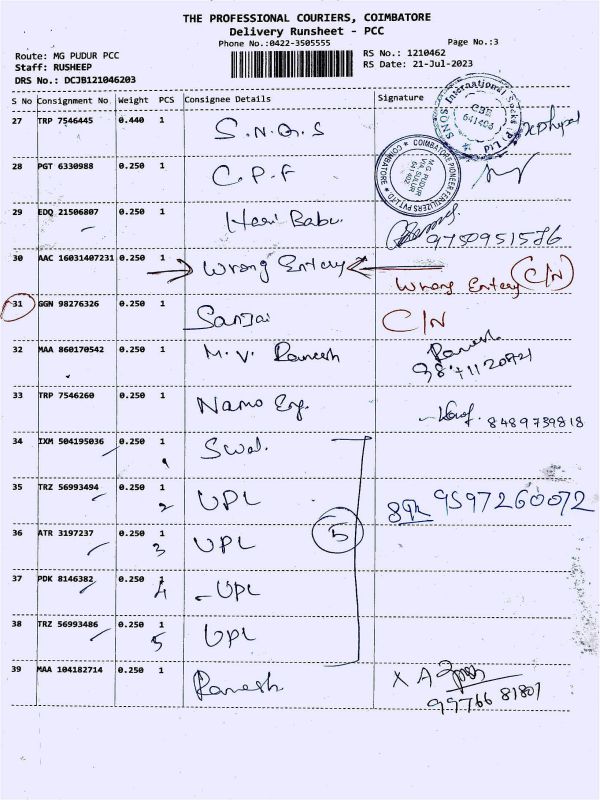 THE PROFESSIONAL COURIERS, COIMBATORE
Delivery Runsheet - PCC
Phone No.:0422-3505555 Page No.:3
Route: MG PUDUR PCC RS No.: 1210462
Staff: RUSHEEP RS Date: 21-Jul-2023
DRS No.: DCJB121046203
S No Consignment No Weight PCS Consignee Details Signature
SNQS International Socks (P) Ltd
CBE
641406
27 TRP 7546445 0.440 1 S.N.Q.S
COIMBATORE PIONEER FERTILIZERS PVT LTD COIMBATORE
MG PUDUR
VIA SULUR
641402
28 PGT 6330988 0.250 1 C.P.F
29 EDQ 21506807 0.250 1 Hari Babu. 9750951586
30 AAC 16031407231 0.250 1 Wrong Entery Wrong Entery C/N
31 GGN 98276326 0.250 1 Sanjai C/N
32 MAA 860170542 0.250 1 M.V. Ramesh Ramesh
33 TRP 7546260 0.250 1 Namo Eng. 8489739818
34 IXM 504195036 0.250 1 Swal.
1
35 TRZ 56993494 0.250 1 UPL 9597260072
2
36 ATR 3197237 0.250 1 UPL 5
3
37 PDK 8146382 0.250 1 -UPL
4
38 TRZ 56993486 0.250 1 UPL
5
39 MAA 104182714 0.250 1 Ramesh X
99766 81807